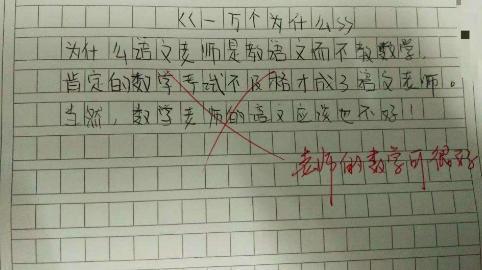 《一万个为什么》
为什么语文老师是教语文而不教数学,
肯定的数学考试不及格才成了语文老师。
当然,数学老师的语文应该也不好!
老师的数学可很好